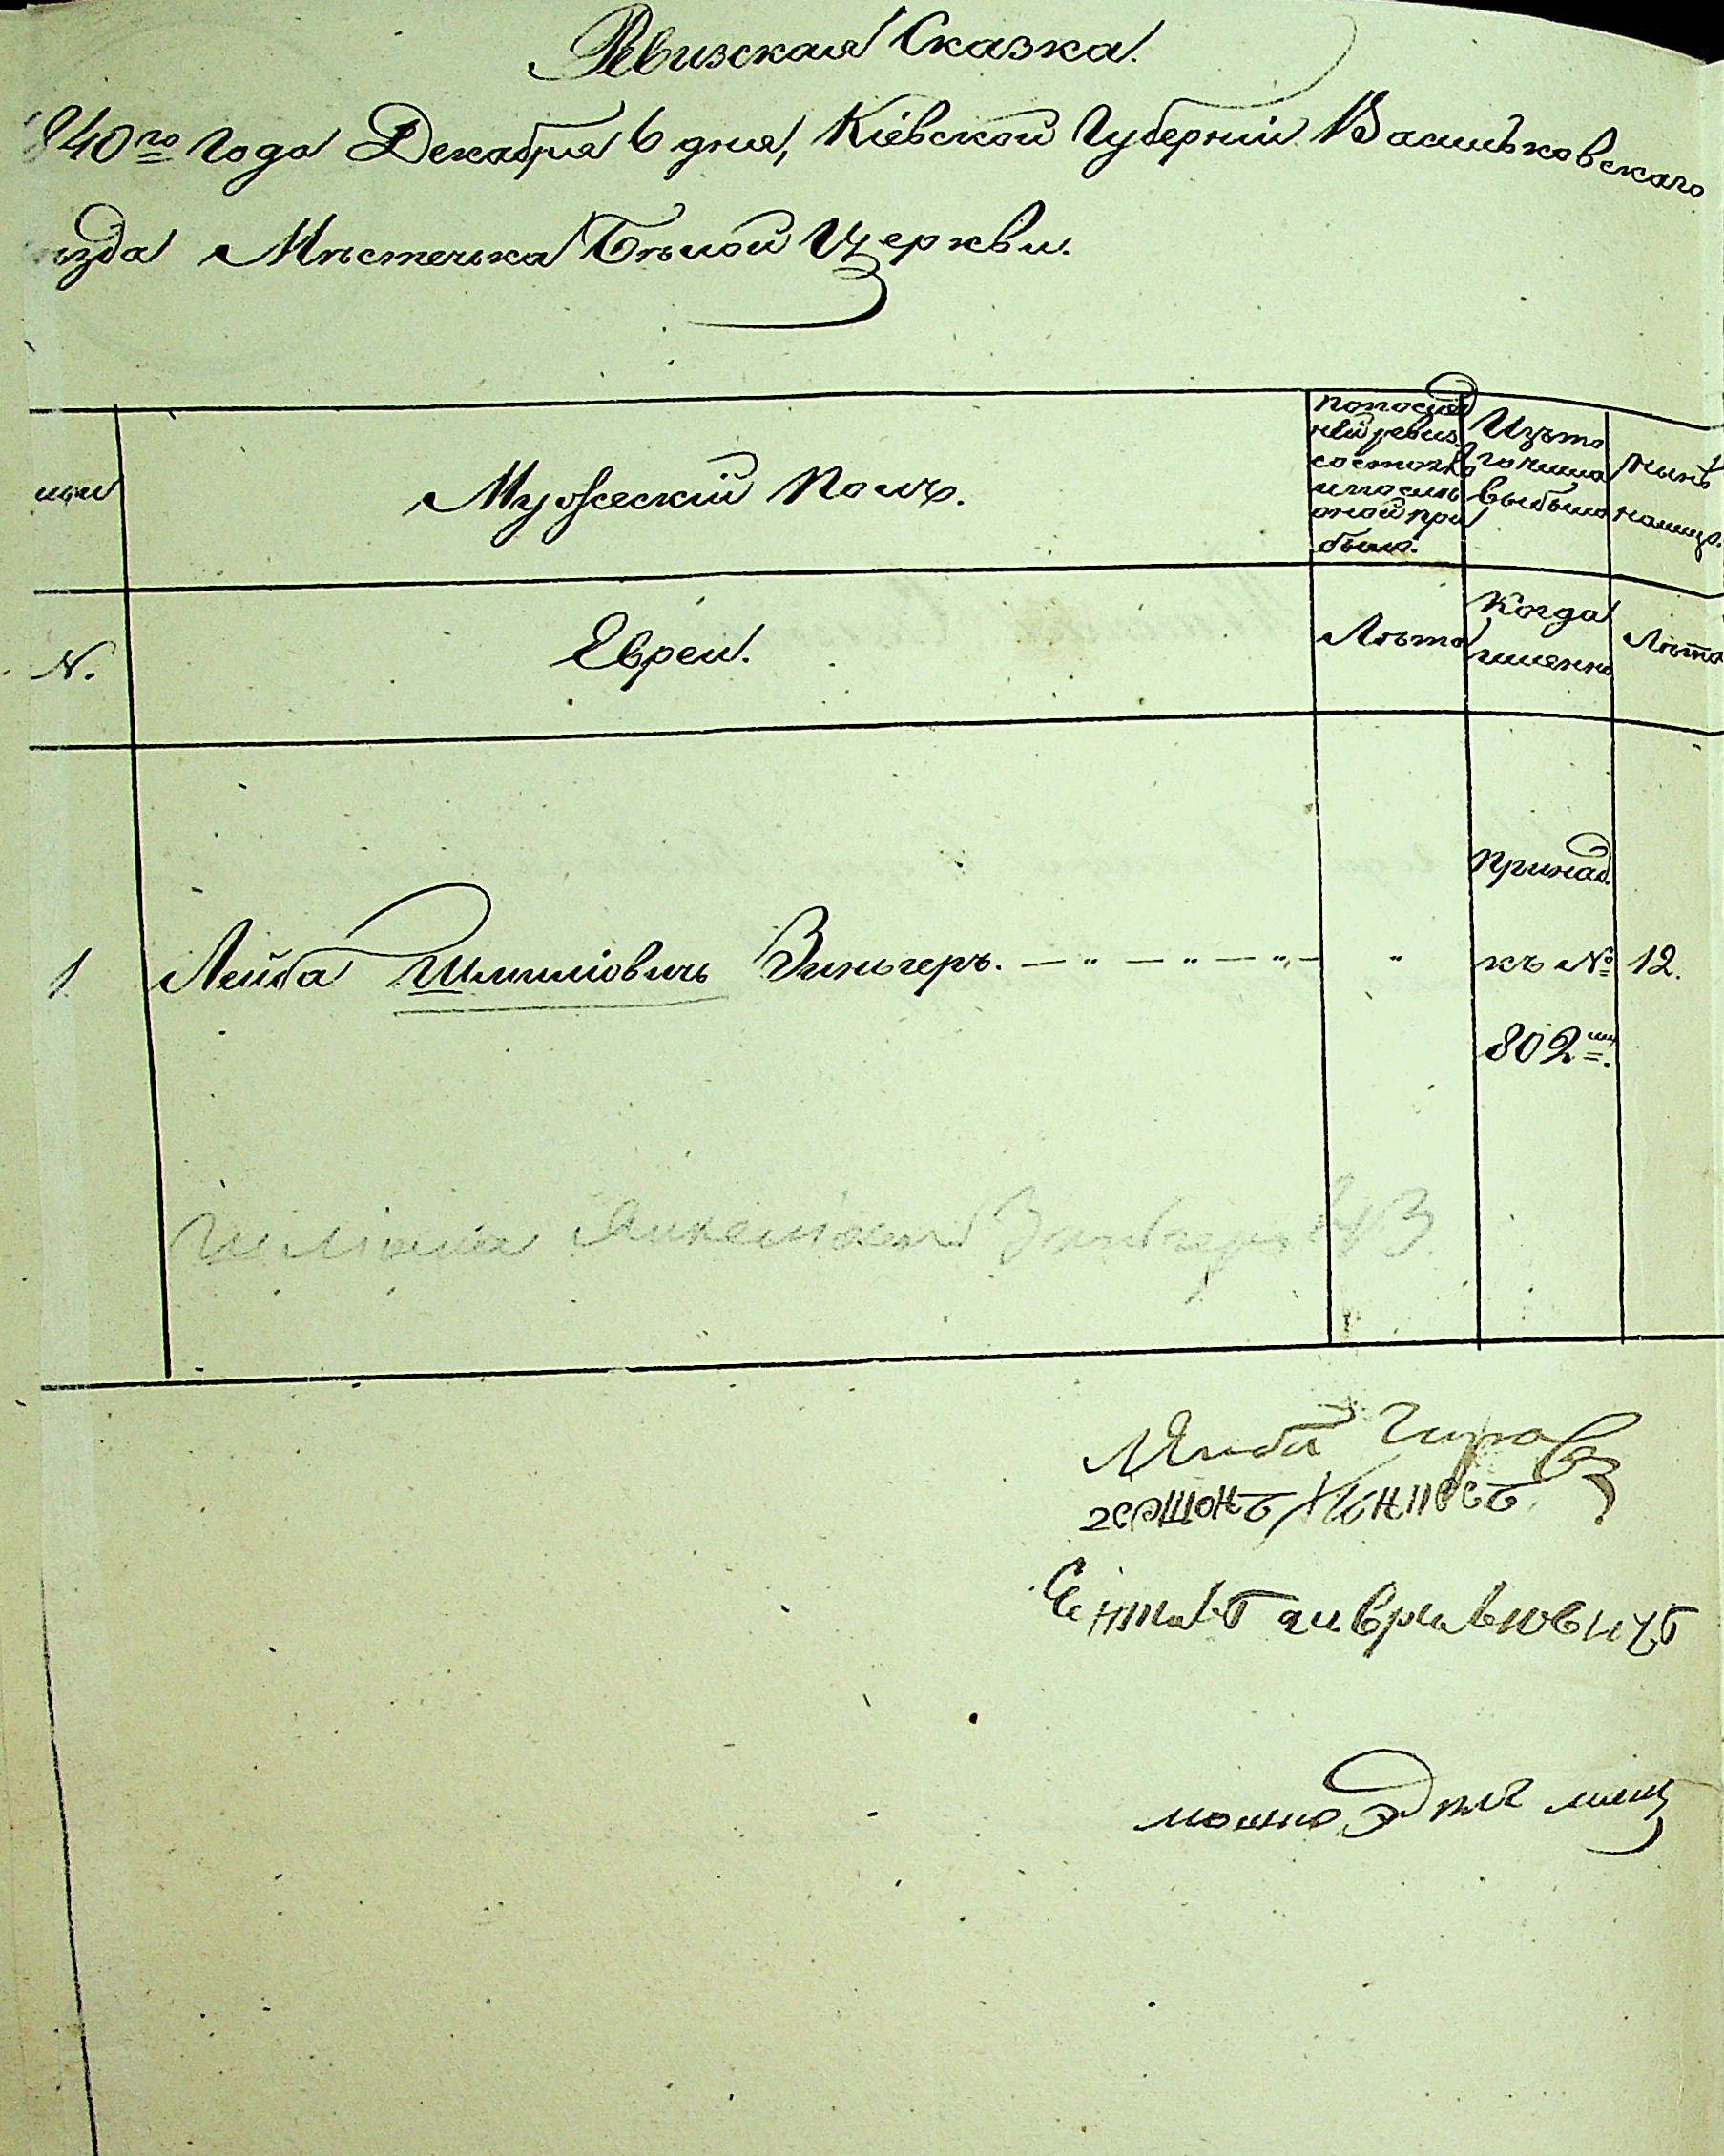 Ревизская Сказка.
1840го Года Декабря 6 дня, Кіевской Губерніи Васильковскаго
ѣзда Мѣстечка Бѣлой Церкви.
Мужескій Полъ.
По послѣд
ней ревиз.
состояло
и послѣ
оной при
было.
Изъ то
го числа
выбыло
Нынѣ
на лицо.
N.
Евреи.
Лѣта
Когда
именно
Лѣта
1
Лейба Шмилiовичь Зингеръ. — „ — „ — „ —
„
Принад.
къ №
802му.
12.
Зингеръ
Лейба
гершонъ
мошко